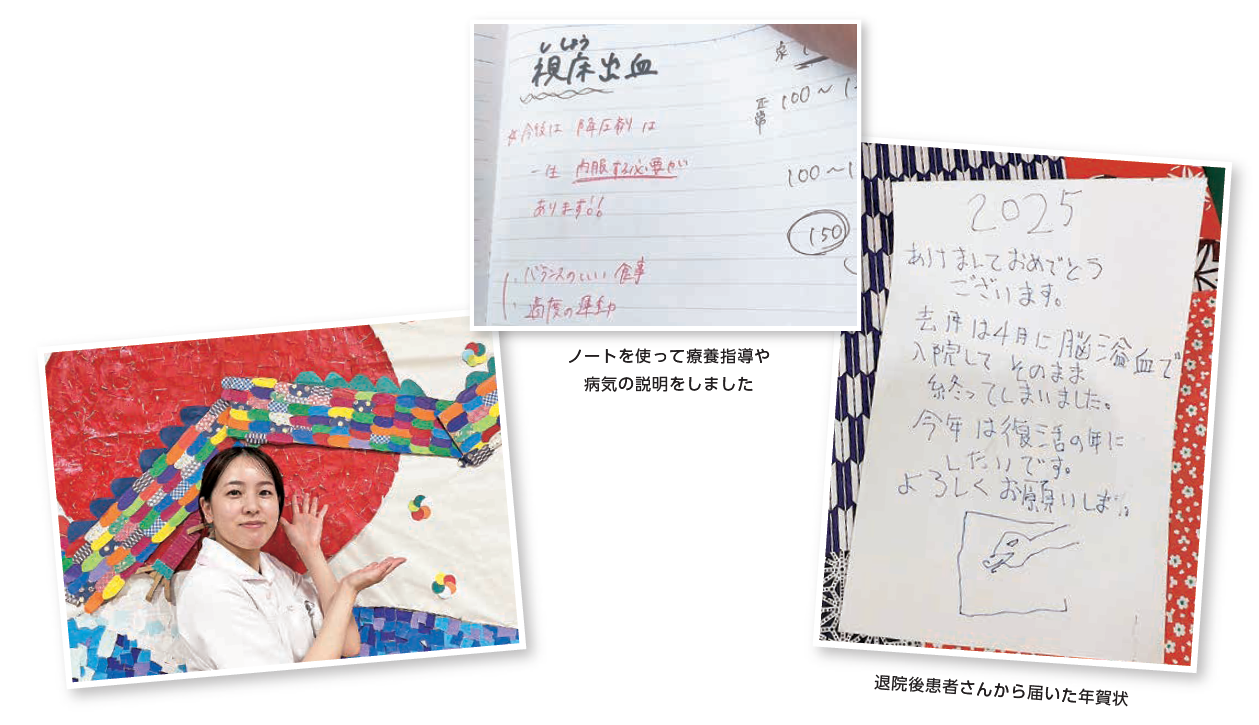 ししょう
視床出血
今後は 降圧剤は
一生 内服する必要が
あります!!
・バランスのいい食事
・適度の運動
正常 100～1
100～1
150
ノートを使って療養指導や
病気の説明をしました
2025
あけましておめでとう
ございます。
去年は4月に脳溢血で
入院して そのまま
終ってしまいました。
今年は復活の年に
したいです。
よろしくお願いします。
退院後患者さんから届いた年賀状